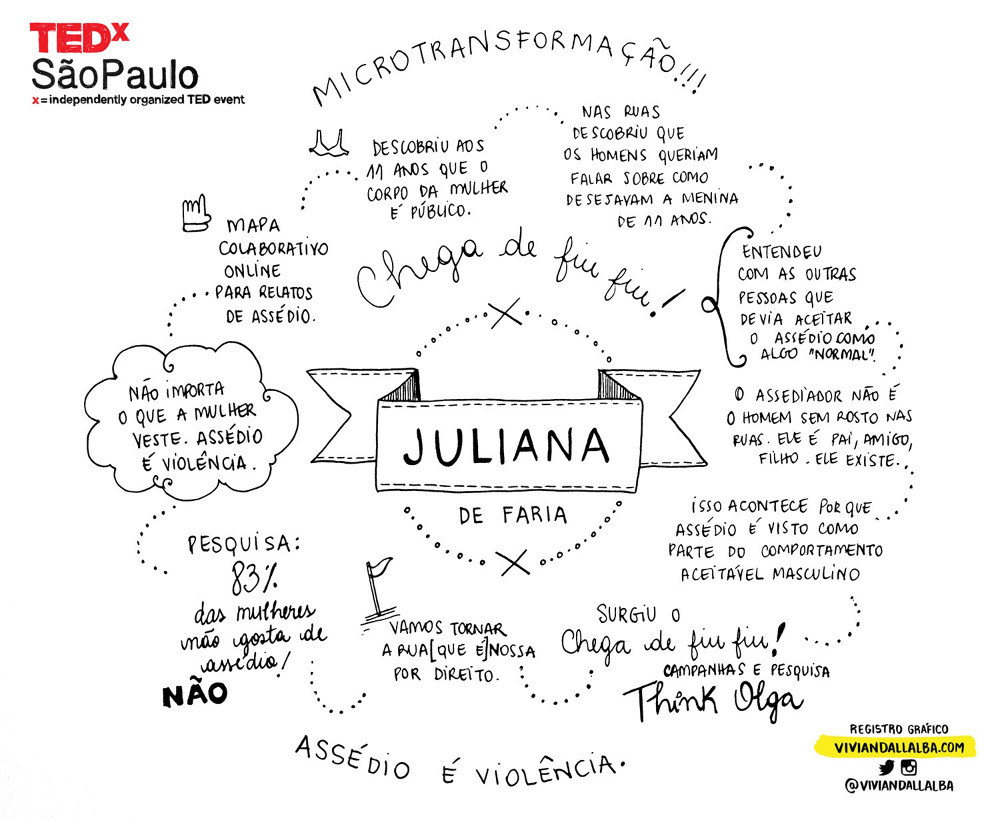 TEDx
SãoPaulo
x=independently organized TED event
MICROTRANSFORMAÇÃO!!!
DESCOBRIU AOS
11 ANOS QUE O
CORPO DA MULHER
É PÚBLICO.
NAS RUAS
DESCOBRIU QUE
OS HOMENS QUERIAM
FALAR SOBRE COMO
DESEJAVAM A MENINA
DE 11 ANOS.
Chega de fiu fiu!
ENTENDEU
COM AS OUTRAS
PESSOAS QUE
DEVIA ACEITAR
O ASSÉDIO COMO
ALGO "NORMAL".
O ASSEDIADOR NÃO É
O HOMEM SEM ROSTO NAS
RUAS. ELE É PAI, AMIGO,
FILHO. ELE EXISTE.
ISSO ACONTECE POR QUE
ASSÉDIO É VISTO COMO
PARTE DO COMPORTAMENTO
ACEITÁVEL MASCULINO
SURGIU O
Chega de fiu fiu!
CAMPANHAS E PESQUISA
Think Olga
VAMOS TORNAR
A RUA[QUE É]NOSSA
POR DIREITO.
PESQUISA:
83%
das mulheres
não gosta de
assédio!
NÃO
NÃO IMPORTA
O QUE A MULHER
VESTE. ASSÉDIO
É VIOLÊNCIA.
MAPA
COLABORATIVO
ONLINE
PARA RELATOS
DE ASSÉDIO.
JULIANA
DE FARIA
ASSÉDIO É VIOLÊNCIA.
REGISTRO GRÁFICO
VIVIANDALLALBA.COM
@VIVIANDALLALBA